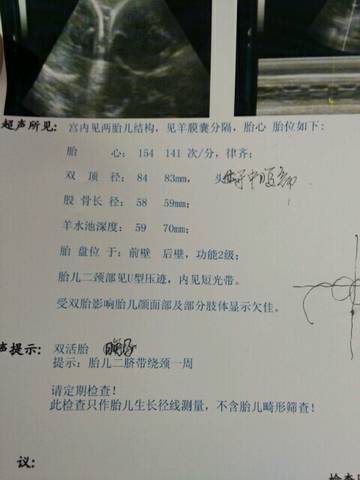 超声所见: 宫内见两胎儿结构, 见羊膜囊分隔, 胎心 胎位如下:
胎 心: 154 141 次/分, 律齐;
双 顶 径: 84 83mm,
股 骨 长 径: 58 59mm;
羊水池深度: 59 70mm;
胎 盘 位 于: 前壁 后壁, 功能2级;
胎儿二颈部见U型压迹, 内见短光带。
受双胎影响胎儿颜面部及部分肢体显示欠佳。
声提示: 双活胎
提示: 胎儿二脐带绕颈一周
请定期检查!
此检查只作胎儿生长径线测量, 不含胎儿畸形筛查!
议: